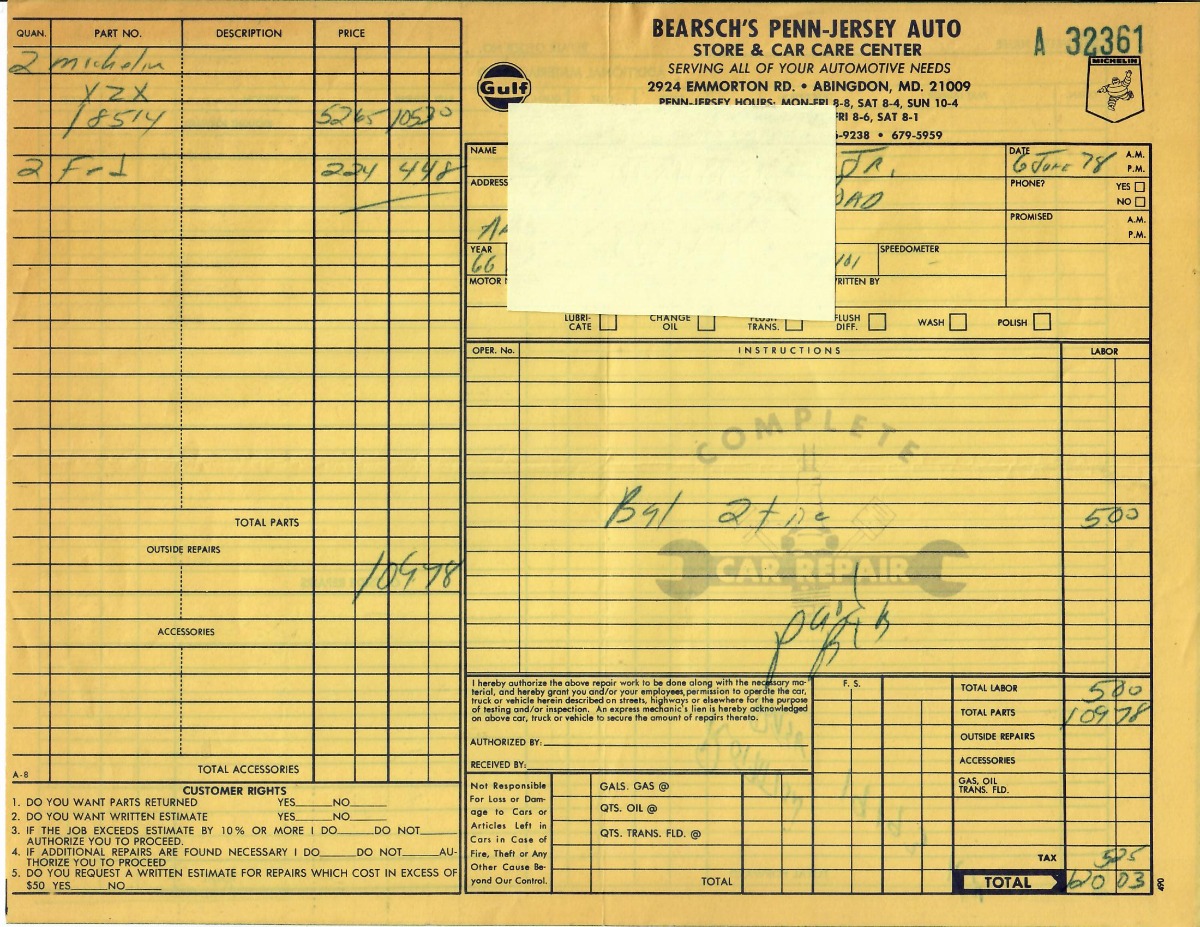 QUAN. PART NO. DESCRIPTION PRICE
2 Michelin
XZX
18514 5265 10530
2 F-1 224 448
TOTAL PARTS
OUTSIDE REPAIRS
10978
ACCESSORIES
A-8 TOTAL ACCESSORIES
CUSTOMER RIGHTS
1. DO YOU WANT PARTS RETURNED YES____NO____
2. DO YOU WANT WRITTEN ESTIMATE YES____NO____
3. IF THE JOB EXCEEDS ESTIMATE BY 10% OR MORE I DO____DO NOT____
AUTHORIZE YOU TO PROCEED.
4. IF ADDITIONAL REPAIRS ARE FOUND NECESSARY I DO____DO NOT____AU-
THORIZE YOU TO PROCEED
5. DO YOU REQUEST A WRITTEN ESTIMATE FOR REPAIRS WHICH COST IN EXCESS OF
$50 YES____NO____
BEARSCH'S PENN-JERSEY AUTO
STORE & CAR CARE CENTER
SERVING ALL OF YOUR AUTOMOTIVE NEEDS
2924 EMMORTON RD. • ABINGDON, MD. 21009
PENN-JERSEY HOURS: MON-FRI 8-8, SAT 8-4, SUN 10-4
FRI 8-6, SAT 8-1
-9238 • 679-5959
Gulf
A 32361
MICHELIN
NAME JR. DATE 6 June 78 A.M.
P.M.
ADDRESS OAD PHONE? YES
NO
PROMISED A.M.
P.M.
YEAR 66 101 SPEEDOMETER -
MOTOR RITTEN BY
LUBRI-
CATE CHANGE
OIL FLUSH
TRANS. FLUSH
DIFF. WASH POLISH
OPER. No. INSTRUCTIONS LABOR
COMPLETE
Bal 2 tire 500
CAR REPAIR
I hereby authorize the above repair work to be done along with the necessary ma-
terial, and hereby grant you and/or your employees, permission to operate the car,
truck or vehicle herein described on streets, highways or elsewhere for the purpose
of testing and/or inspection. An express mechanic's lien is hereby acknowledged
on above car, truck or vehicle to secure the amount of repairs thereto.
AUTHORIZED BY:
RECEIVED BY:
F. S.
Not Responsible
For Loss or Dam-
age to Cars or
Articles Left in
Cars in Case of
Fire, Theft or Any
Other Cause Be-
yond Our Control.
GALS. GAS @
QTS. OIL @
QTS. TRANS. FLD. @
TOTAL
TOTAL LABOR 500
TOTAL PARTS 10978
OUTSIDE REPAIRS
ACCESSORIES
GAS, OIL
TRANS. FLD.
TAX 525
TOTAL 12003
490